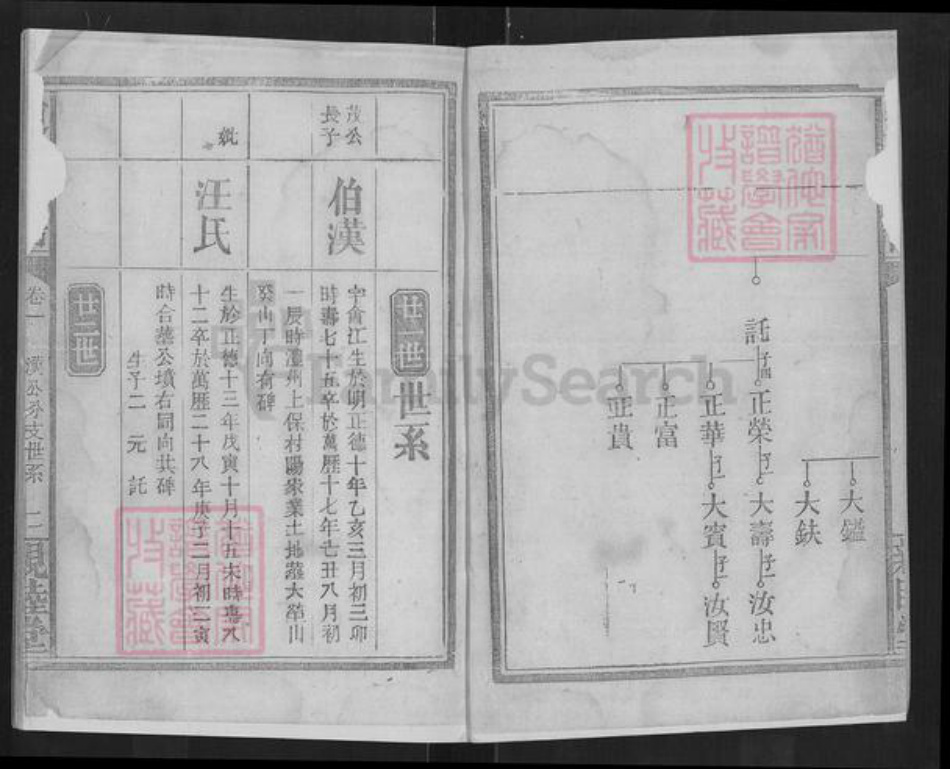 託
子四
正榮
正華
正富
正貴
子一
大壽
子一
大賓
大鑑
大鈇
子一
汝忠
子一
汝賢
廿一世世系
茂公長子
伯漢
字貪江生於明正德十年乙亥三月初三卯
時壽七十五卒於萬歷十七年己丑八月初
一辰時澧州上保村陽家業土地塟大堂山
癸山丁向有碑
妣
汪氏
生於正德十三年戊寅十月十五未時壽八
十二卒於萬歷二十八年庚子二月初二寅
時合塟公墳右同向共碑
生子二 元 託
廿二世
卷一 漢公分支世系 二
親睦堂
FamilySearch